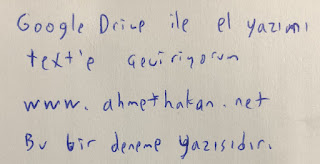 Google Drive ile el yazımı
text'e çeviriyorum
www.ahmethakan.net
Bu bir deneme yazısıdır.